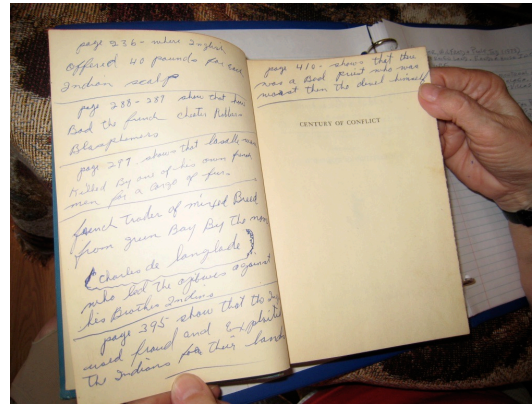 page 236 - where English
Offered 40 pounds for each
Indian scalp
page 288-289 show that
Bad the french cheters Robbers
Blasphemers
page 297 shows that lasalle was
Killed By one of his own french
man for a cargo of furs
french trader of mixed Breed
from green Bay By the name
(Charles de langlade)
who led the against
his Brother Indins
page 395 - show that the
used fraud and Exploited
the Indians for their lands
page 410 - shows that there
was a Bad priest who was
then the devil himself
CENTURY OF CONFLICT